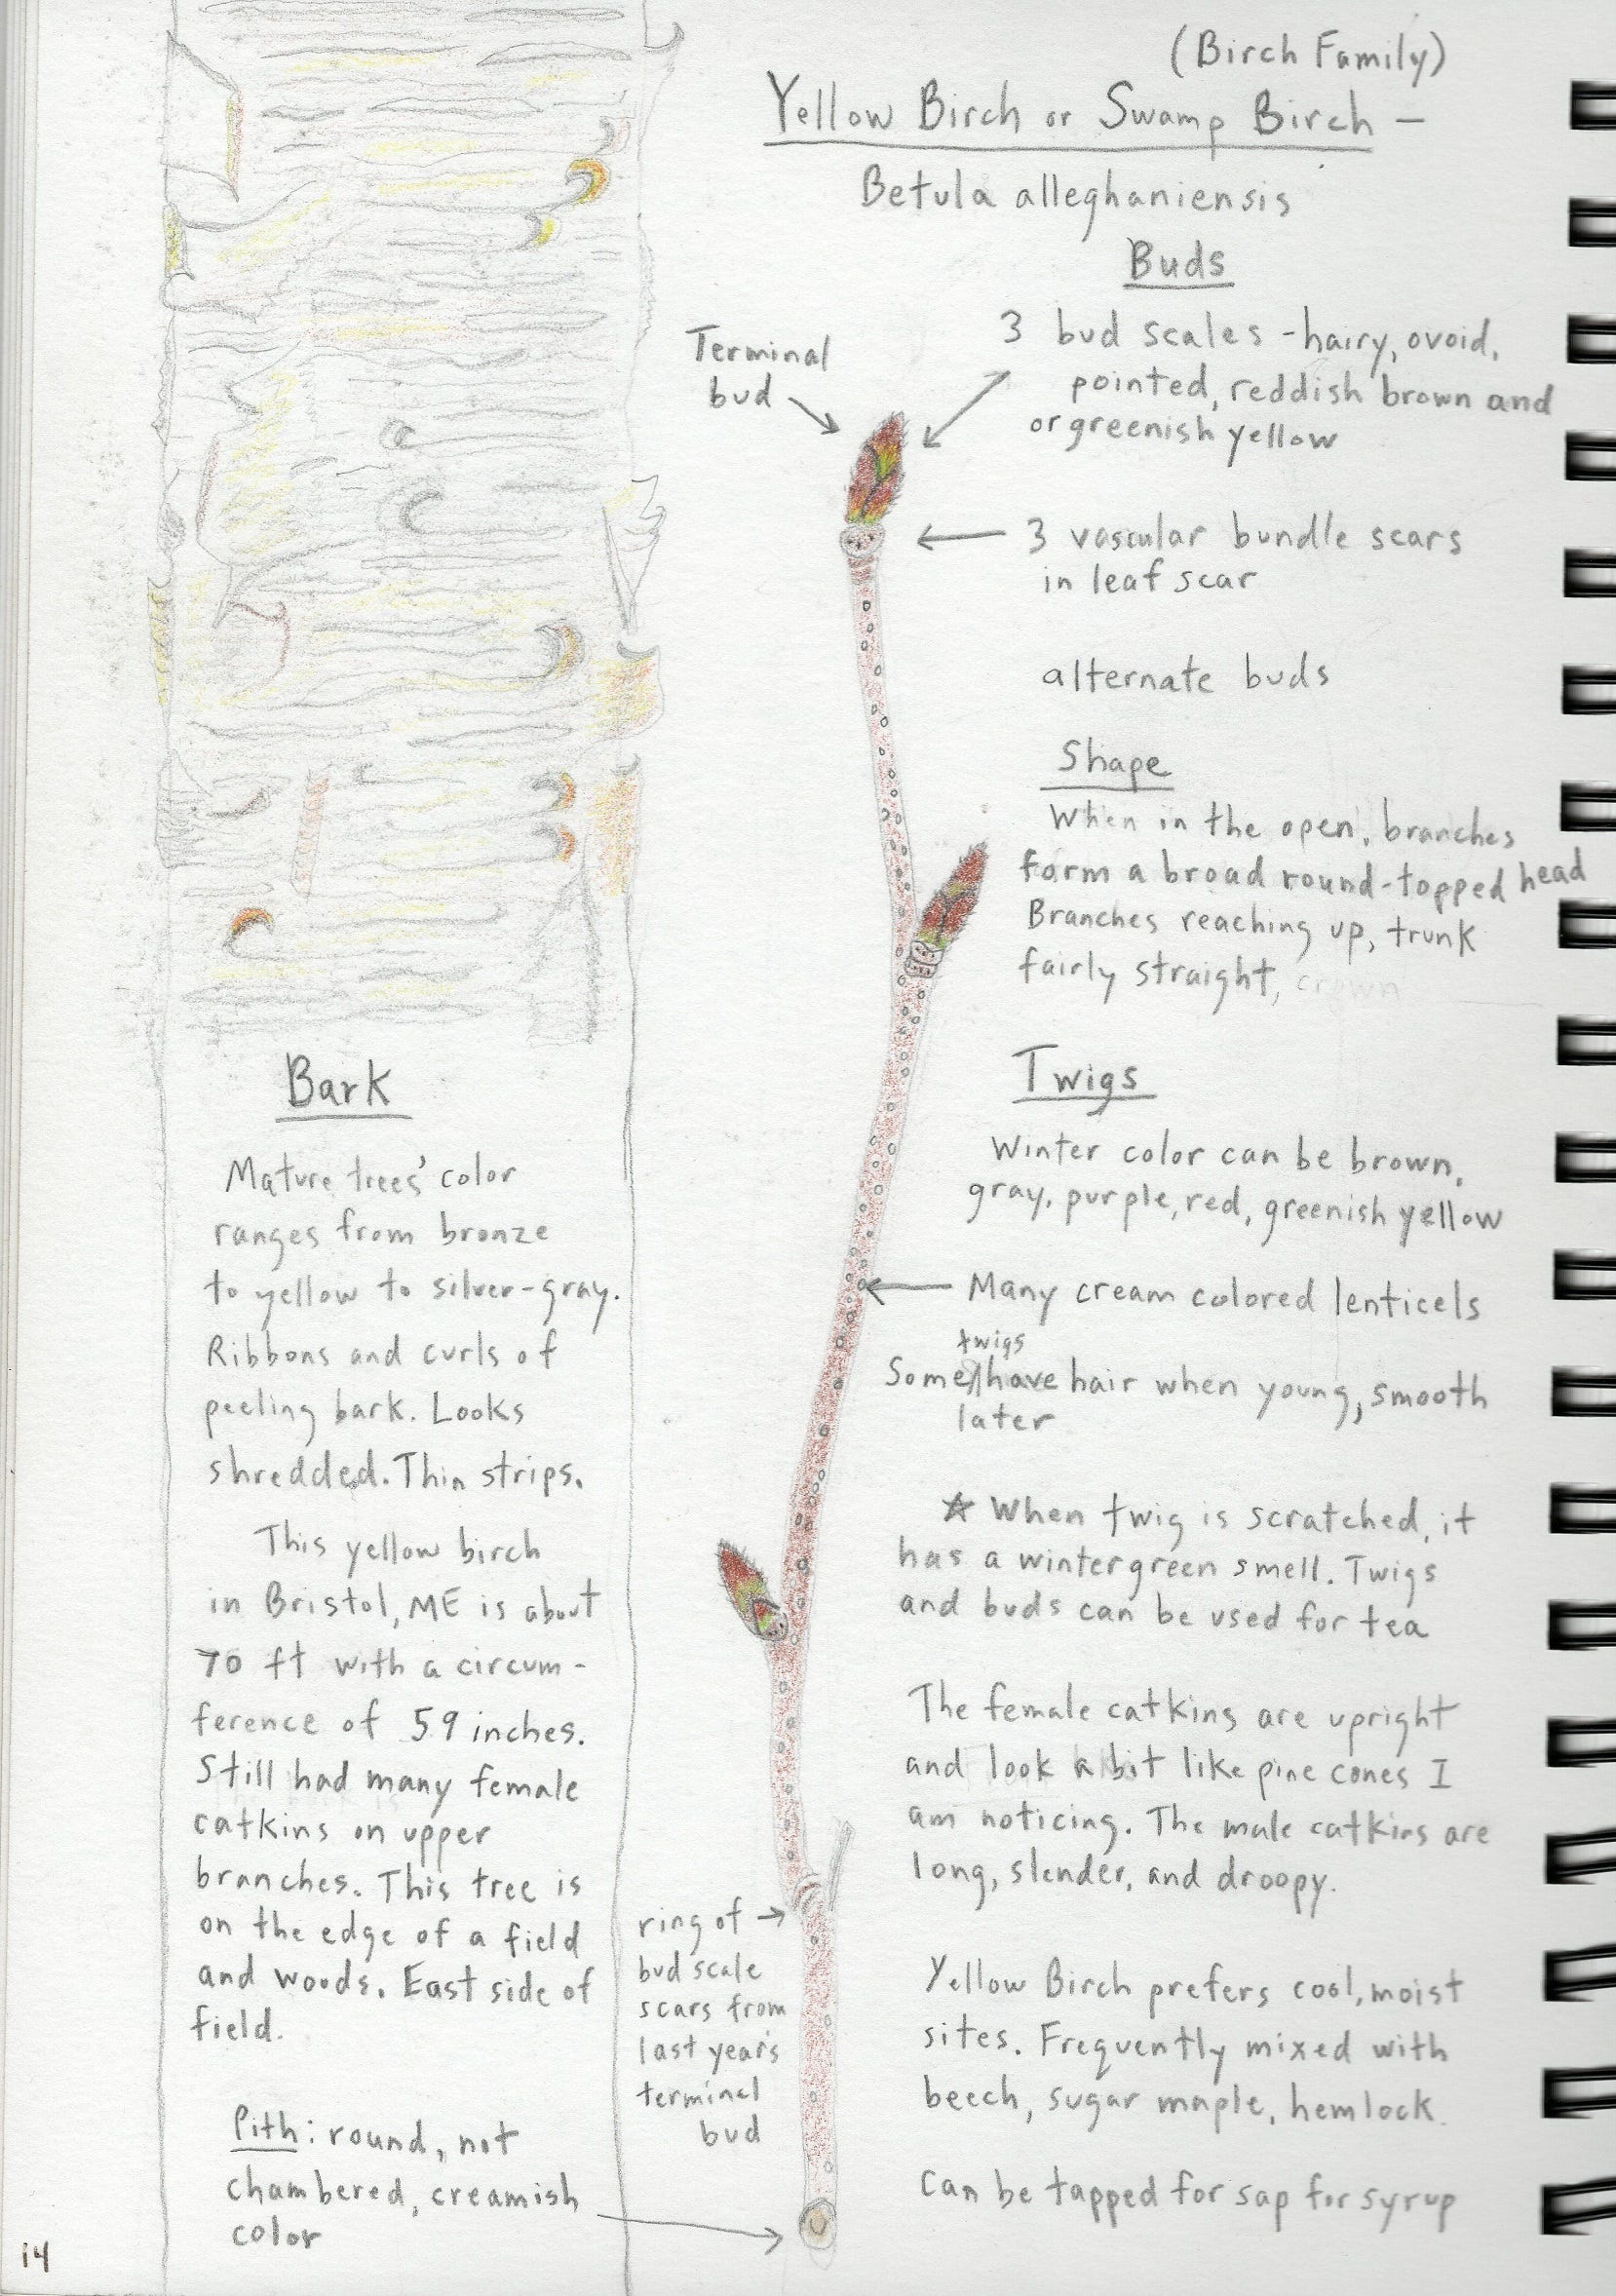 (Birch Family)
Yellow Birch or Swamp Birch –
Betula alleghaniensis
Buds
Terminal
bud
3 bud scales - hairy, ovoid,
pointed, reddish brown and
or greenish yellow
3 vascular bundle scars
in leaf scar
alternate buds
Shape
When in the open, branches
form a broad round-topped head
Branches reaching up, trunk
fairly straight, crown
Twigs
Winter color can be brown,
gray, purple, red, greenish yellow
Many cream colored lenticels
twigs
Some have hair when young, smooth
later
☆ When twig is scratched, it
has a wintergreen smell. Twigs
and buds can be used for tea
The female catkins are upright
and look a bit like pine cones I
am noticing. The male catkins are
long, slender, and droopy.
Yellow Birch prefers cool, moist
sites. Frequently mixed with
beech, sugar maple, hemlock.
Can be tapped for sap for syrup
Bark
Mature trees' color
ranges from bronze
to yellow to silver-gray.
Ribbons and curls of
peeling bark. Looks
shredded. Thin strips.
This yellow birch
in Bristol, ME is about
70 ft with a circum-
ference of 59 inches.
Still had many female
catkins on upper
branches. This tree is
on the edge of a field
and woods. East side of
field.
ring of
bud scale
scars from
last year's
terminal
bud
Pith: round, not
chambered, creamish
color
14